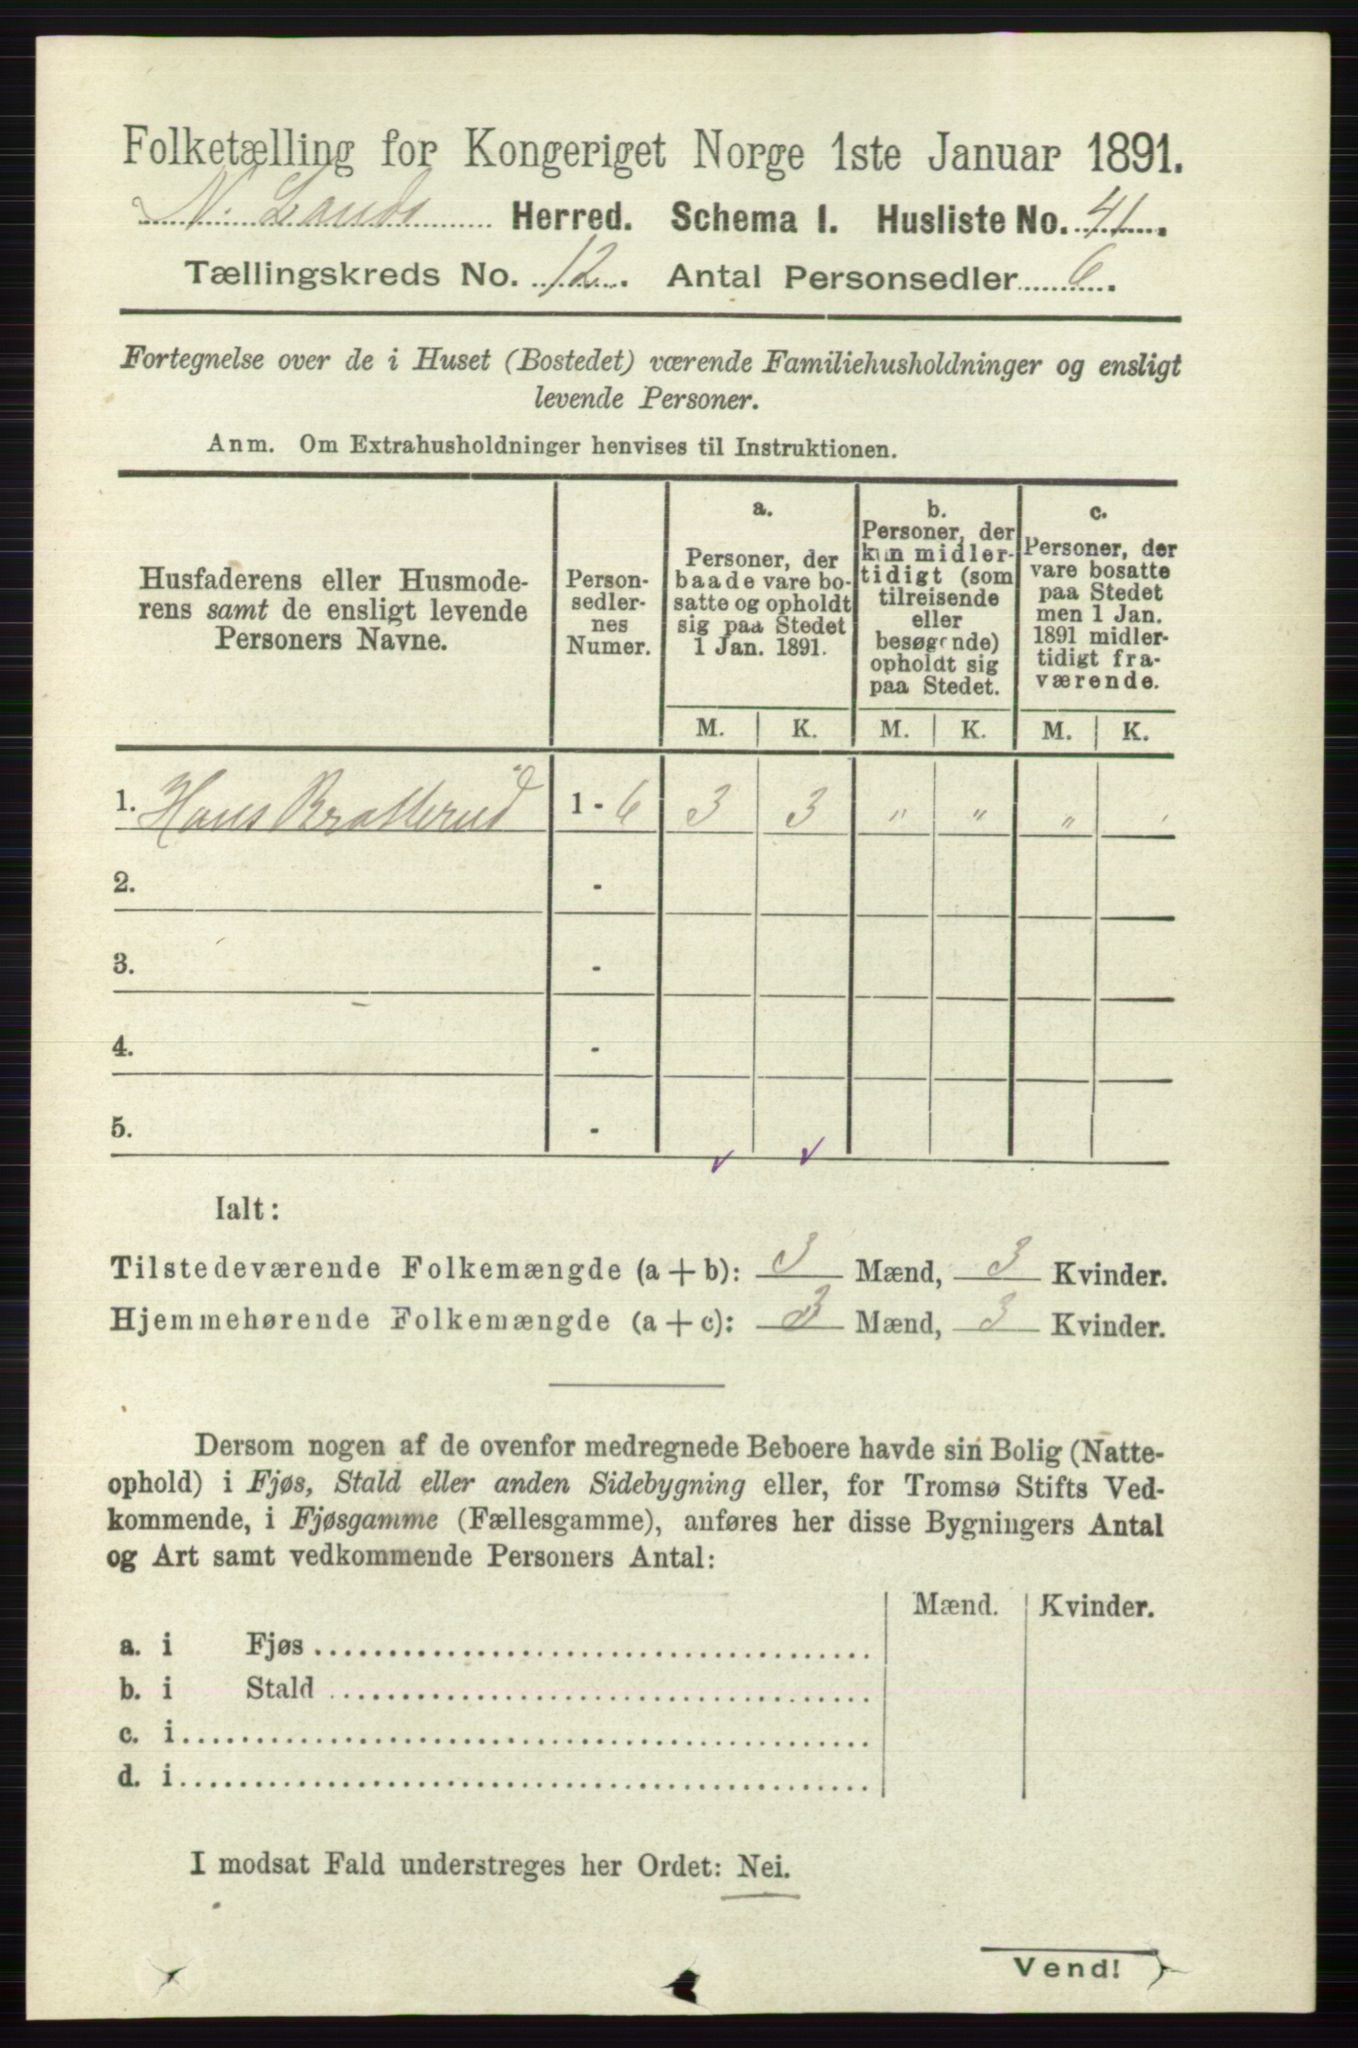 Folketælling for Kongeriget Norge 1ste Januar 1891.
N. Lands Herred. Schema I. Husliste No. 41.
Tællingskreds No. 12. Antal Personsedler 6.
Fortegnelse over de i Huset (Bostedet) værende Familiehusholdninger og ensligt
levende Personer.
Anm. Om Extrahusholdninger henvises til Instruktionen.
Husfaderens eller Husmode-
rens samt de ensligt levende
Personers Navne.
Person-
sedler-
nes
Numer.
a.
Personer, der
baade vare bo-
satte og opholdt
sig paa Stedet
1 Jan. 1891.
b.
Personer, der
kun midler-
tidigt (som
tilreisende
eller
besøgende)
opholdt sig
paa Stedet.
c.
Personer, der
vare bosatte
paa Stedet
men 1 Jan.
1891 midler-
tidigt fra-
værende.
M. K. M. K. M. K.
1. Hans Bratterud 1 - 6 3 3 " " "
2. -
3. -
4. -
5. -
Ialt:
Tilstedeværende Folkemængde (a + b): 3 Mænd, 3 Kvinder.
Hjemmehørende Folkemængde (a + c): 3 Mænd, 3 Kvinder.
Dersom nogen af de ovenfor medregnede Beboere havde sin Bolig (Natte-
ophold) i Fjøs, Stald eller anden Sidebygning eller, for Tromsø Stifts Ved-
kommende, i Fjøsgamme (Fællesgamme), anføres her disse Bygningers Antal
og Art samt vedkommende Personers Antal:
Mænd. Kvinder.
a. i Fjøs
b. i Stald
c. i
d. i
I modsat Fald understreges her Ordet: Nei.
Vend!